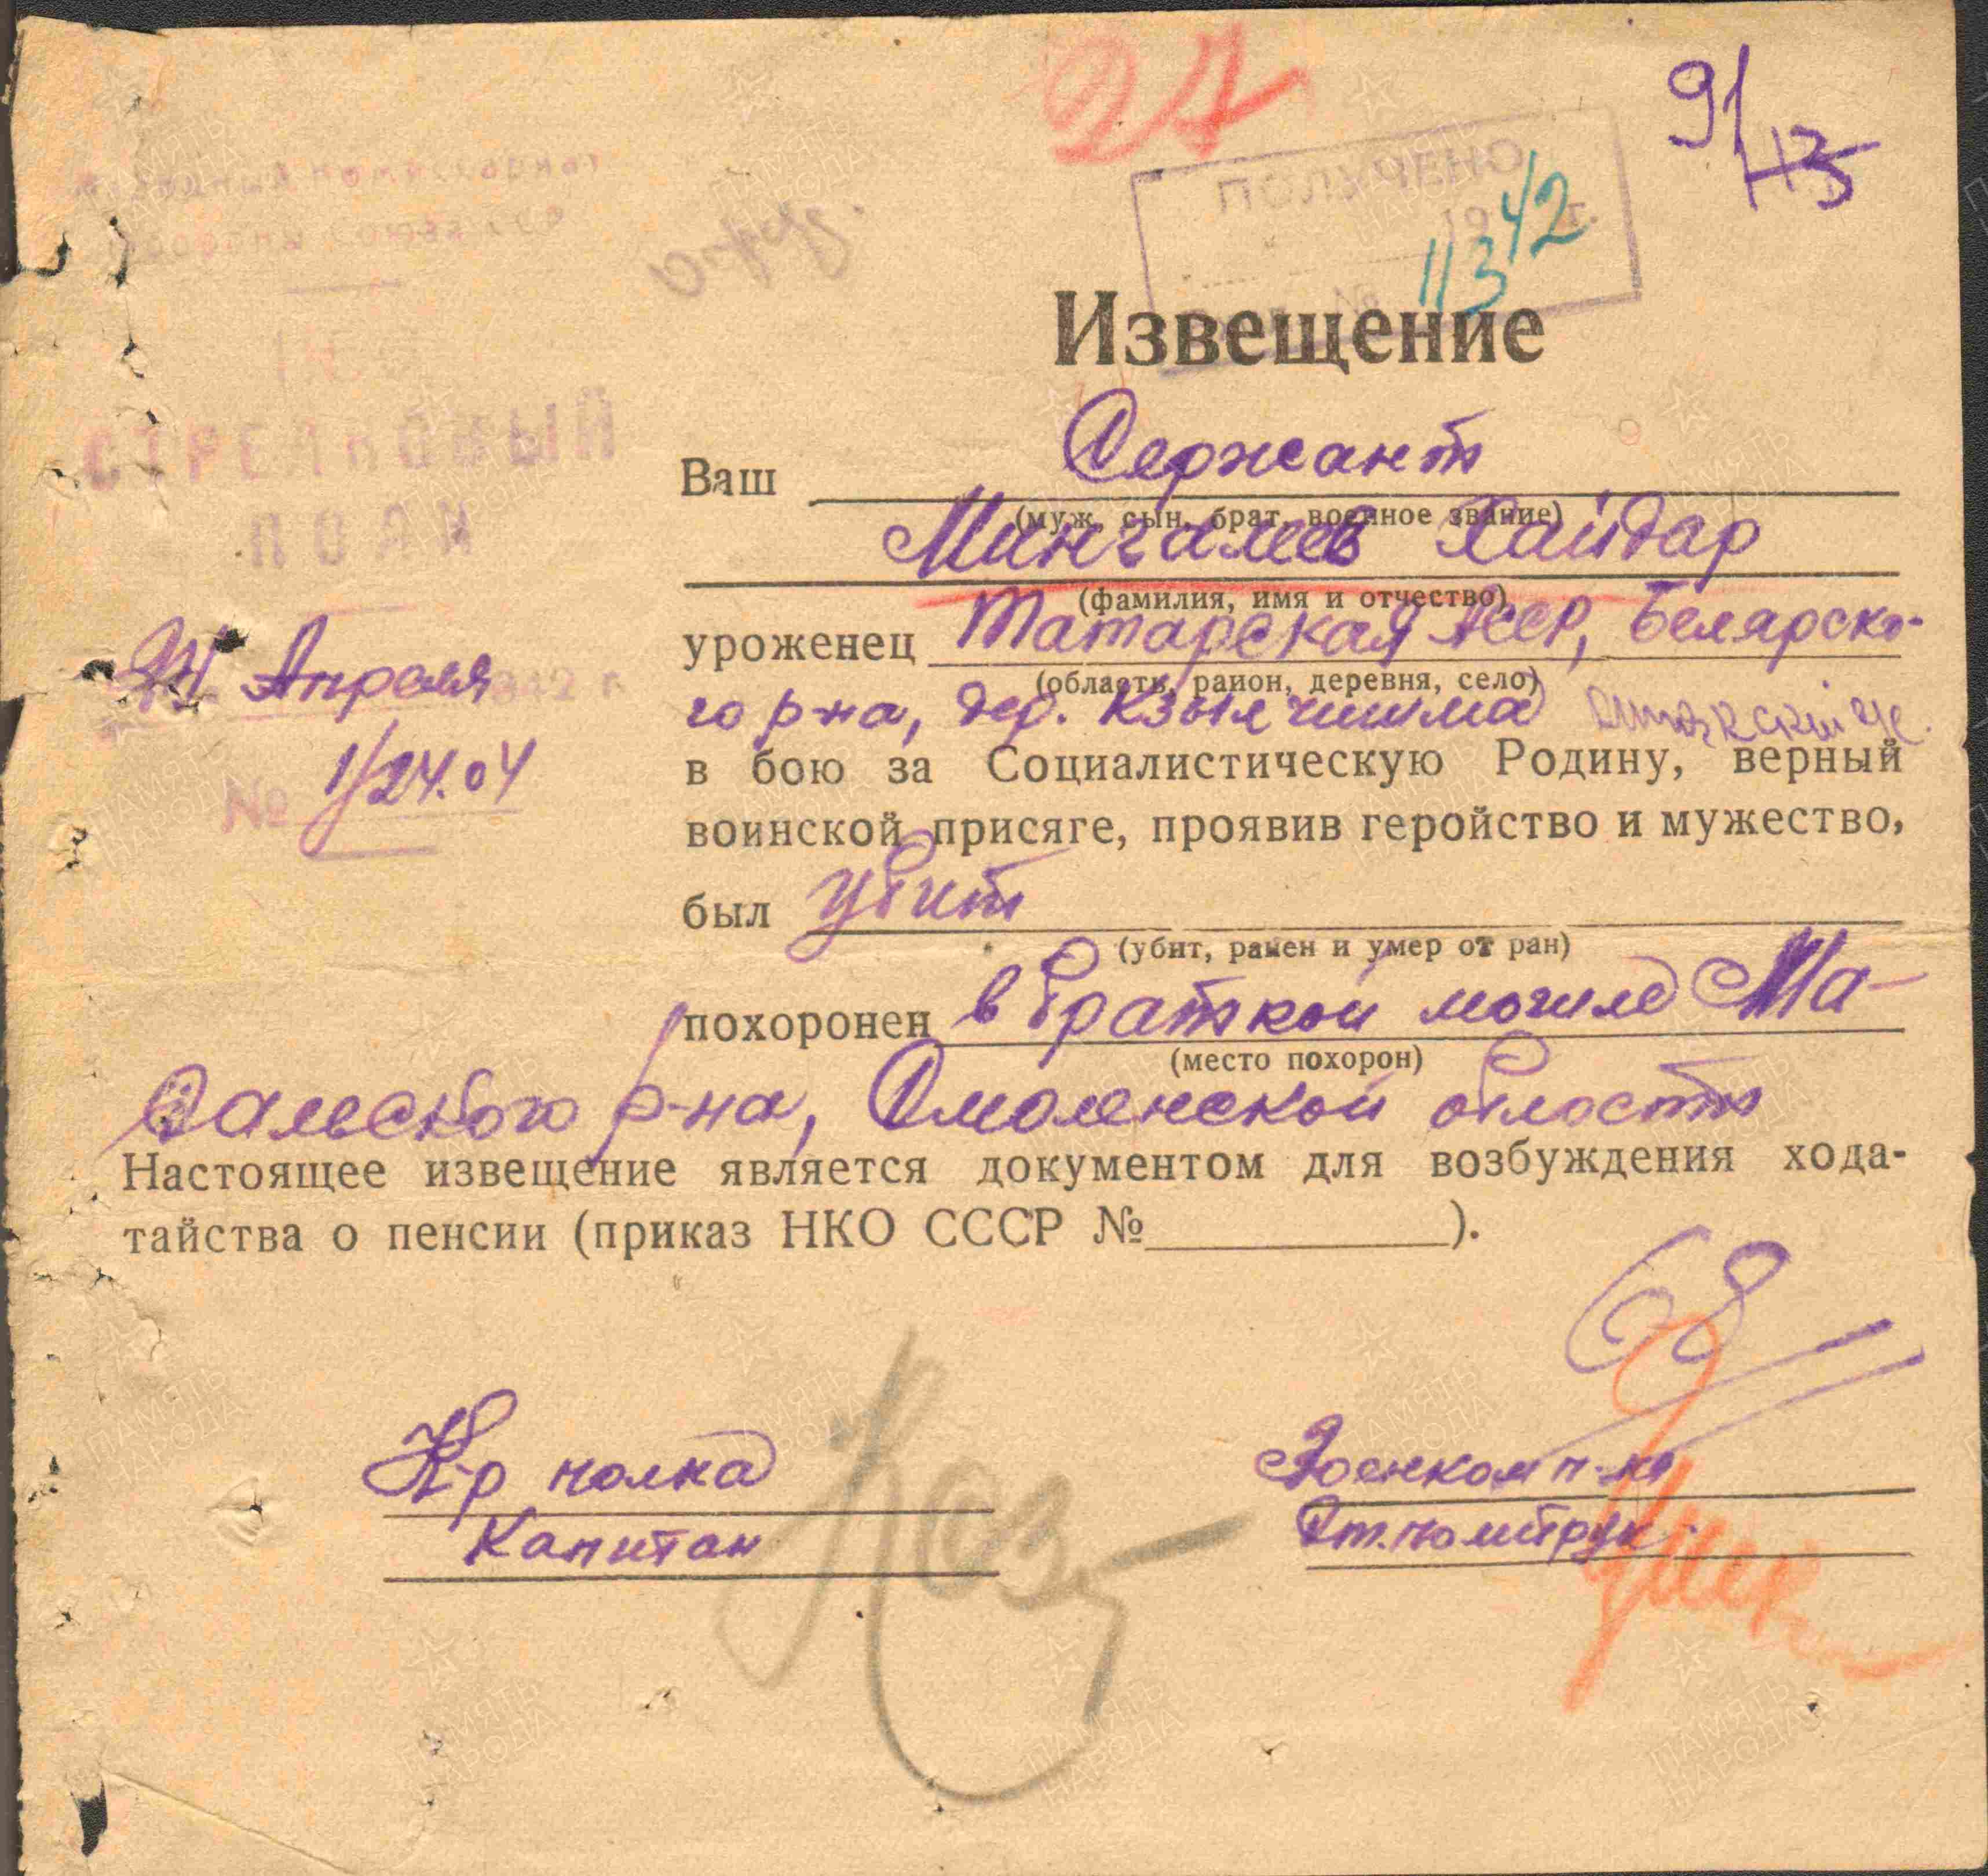 27
91
113
Народный Комиссариат
Обороны Союза ССР
ПОЛУЧЕНО
1942 г.
№ 113
Извещение
СТРЕЛКОВЫЙ
ПОЛК
Ваш Сержант
(муж, сын, брат, военное звание)
Мингалеев Хайдар
(фамилия, имя и отчество)
24 Апреля 1942 г.
№ 1/24.04
уроженец Татарская АССР, Белярско-
(область, район, деревня, село)
го р-на, дер. Кзыл чишма
в бою за Социалистическую Родину, верный
воинской присяге, проявив геройство и мужество,
был убит
(убит, ранен и умер от ран)
похоронен в братской могиле Ма-
(место похорон)
сальского р-на, Смоленской области
Настоящее извещение является документом для возбуждения хода-
тайства о пенсии (приказ НКО СССР №).
68
К-р полка
Капитан
Военком п-ка
Ст. политрук